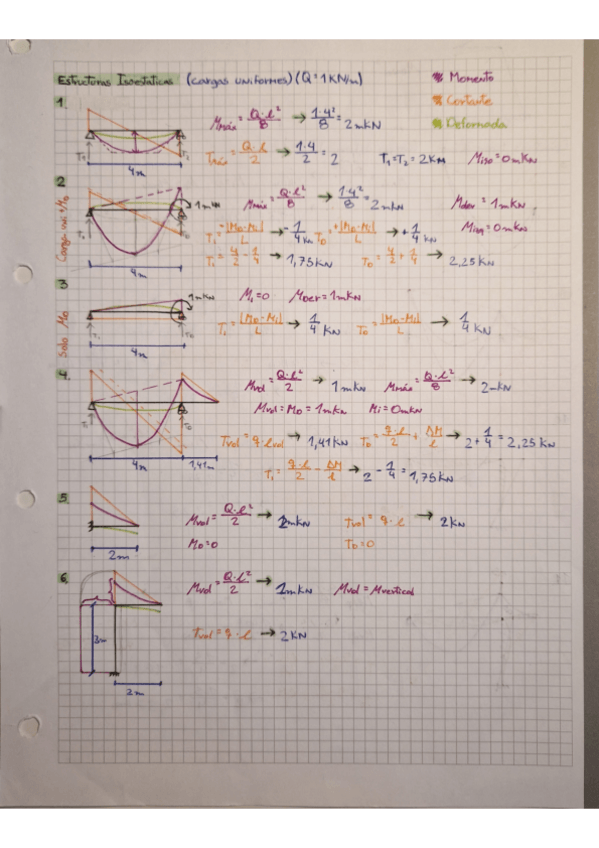 Estructuras Isostaticas (cargas uniformes) (Q=1KN/m)
Momento
Cortante
Deformada
1.
Mmáx = Q·l²/8 → 1·4²/8 = 2mkN
Tmáx = Q·l/2 → 1·4/2 = 2 T₁=T₂ = 2KN Miso = 0mKN
T₁
4m
2
Carga uni + Mo
1mKN
Mmáx = Q·l²/8 → 1·4²/8 = 2mKN Mder = 1mKN
Mizq = 0mKN
Ti = -|Mo-Mi|/L → -1/4 KN TD = +|Mo-Mi|/L → +1/4 KN
Ti = 4/2 - 1/4 → 1,75KN TD = 4/2 + 1/4 → 2,25KN
4m
3
Solo Mo
1mKN
Mi=0 Mder=1mKN
Ti = |Mo-Mi|/L → 1/4 KN TD = |Mo-Mi|/L → 1/4 KN
4m
4.
Mvol = Q·l²/2 → 1mKN Mmáx = Q·l²/8 → 2mKN
Mvol = MD = 1mKN Mi = 0mKN
Tvol = q·lvol → 1,41KN TD = q·l/2 + ΔM/l → 2+1/4 = 2,25KN
Ti = q·l/2 - ΔM/l → 2 - 1/4 = 1,75KN
4m 1,41m
5.
Mvol = Q·l²/2 → 2mKN Tvol = q·l → 2KN
MD=0 TD=0
2m
6.
Mvol = Q·l²/2 → 1mKN Mvol = Mvertical
3m
Tvol = q·l → 2KN
2m